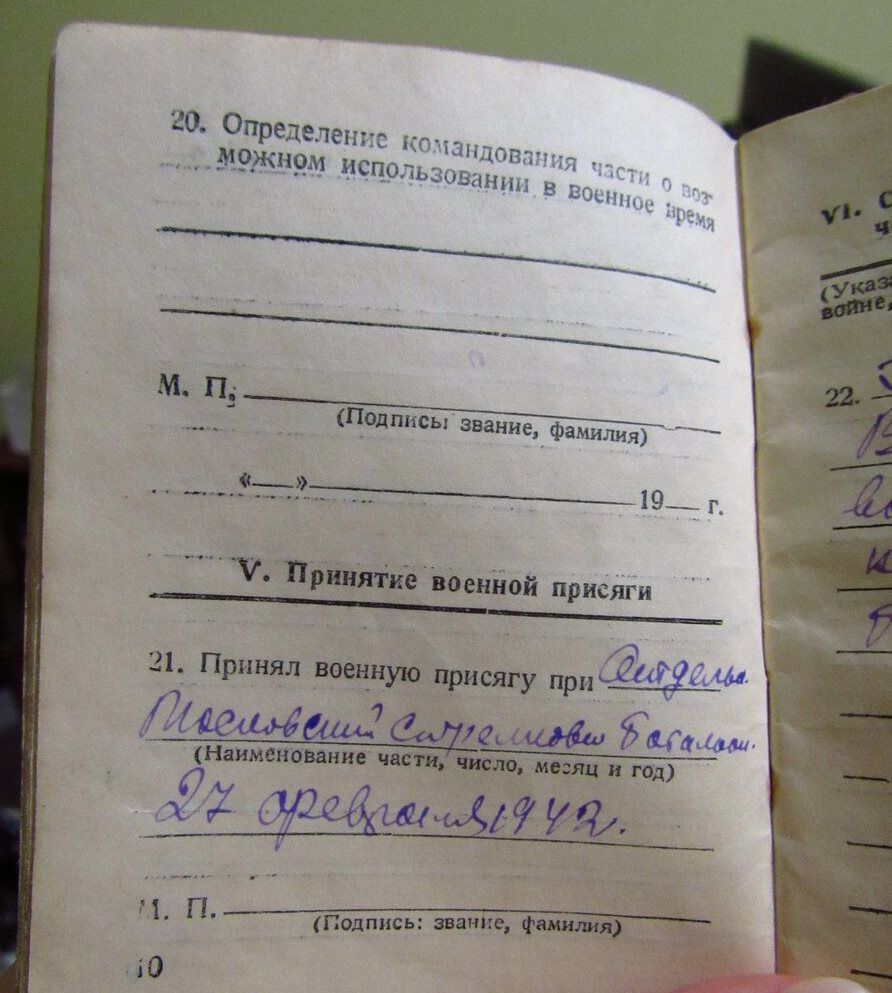 20. Определение командования части о воз-
можном использовании в военное время
М. П.
(Подпись: звание, фамилия)
«__»____19__ г.
V. Принятие военной присяги
21. Принял военную присягу при Отдельн.
Московский Стрелковый Баталион.
(Наименование части, число, месяц и год)
27 февраля 1942.
М. П.
(Подпись: звание, фамилия)
10
VI. С
(Указа
войне,
22.